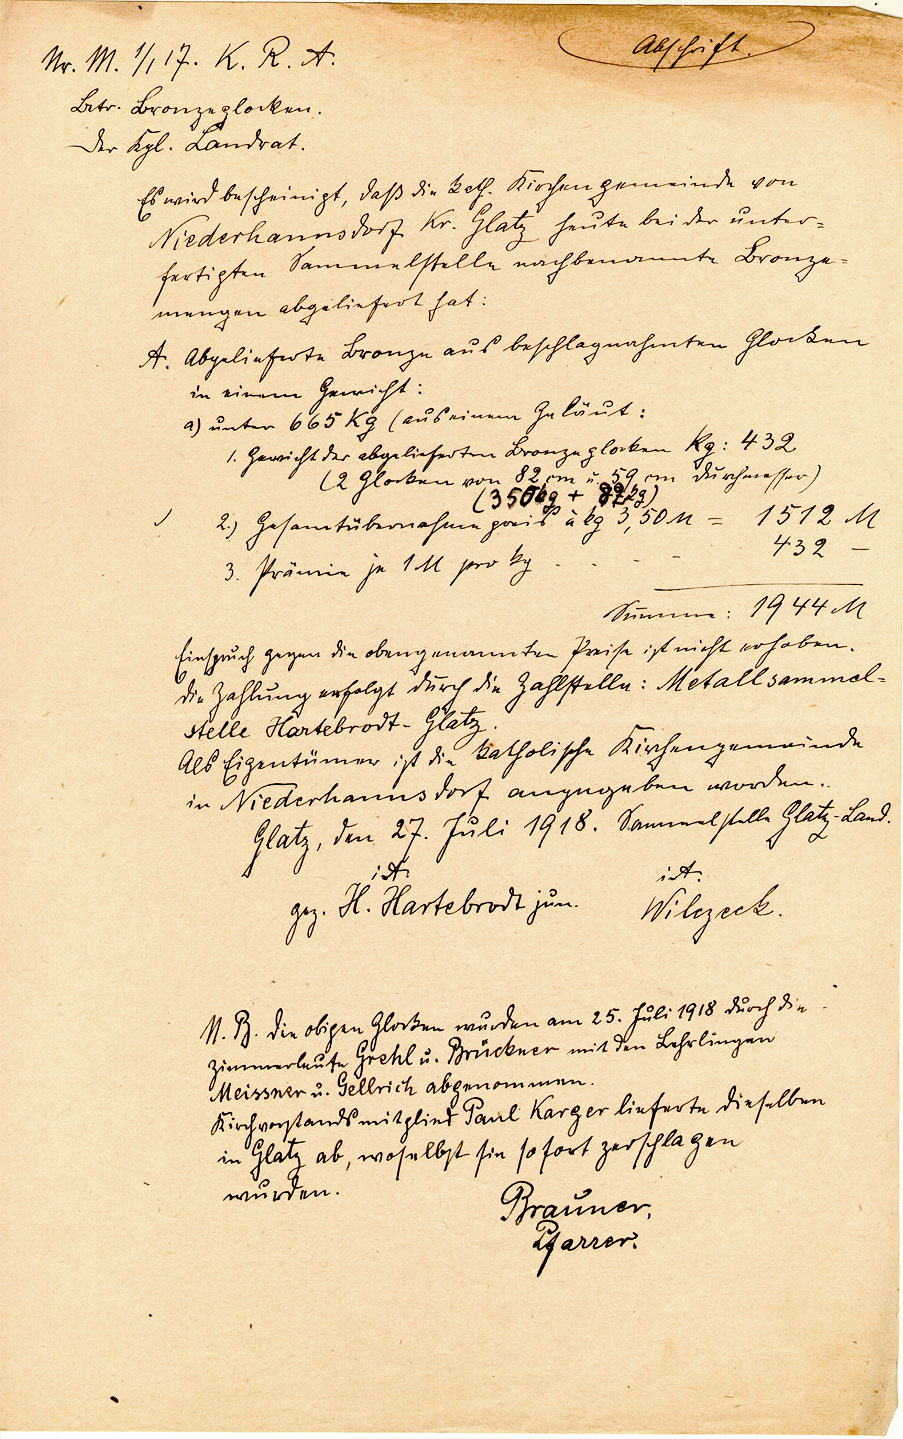 Abschrift.
Nr. M. 1/1 17. K. R. A.
Betr. Bronzeglocken.
Der Kgl. Landrat.
Es wird bescheinigt, daß die kath. Kirchengemeinde von
Niederhannsdorf Kr. Glatz heute bei der unter=
fertigten Sammelstelle nachbenannte Bronze=
mengen abgeliefert hat:
A. Abgelieferte Bronze aus beschlagnahmten Glocken
in einem Gewicht:
a) unter 665 Kg (aus einem Geläut:
1. Gewicht der abgelieferten Bronzeglocken Kg: 432
(2 Glocken von 82 cm u. 59 cm Durchmesser)
(350kg + 82kg)
2.) Gesamtübernahmepreis à kg 3,50 M = 1512 M
3. Prämie je 1 M pro kg . . . - 432 —
Summe: 1944 M
Einspruch gegen die obengenannten Preise ist nicht erhoben.
Die Zahlung erfolgt durch die Zahlstelle: Metallsammel=
stelle Hartebrodt-Glatz.
Als Eigentümer ist die katholische Kirchengemeinde
in Niederhannsdorf angegeben worden.
Glatz, den 27. Juli 1918. Sammelstelle Glatz-Land.
i.A. i.A.
gez. H. Hartebrodt jun. Wilczeck.
N. B. Die obigen Glocken wurden am 25. Juli 1918 durch die
Zimmerleute Grehl u. Brückner mit den Lehrlingen
Meissner u. Gellrich abgenommen.
Kirchvorstandsmitglied Paul Karger lieferte dieselben
in Glatz ab, woselbst sie sofort zerschlagen
wurden.
Brauner,
Pfarrer.